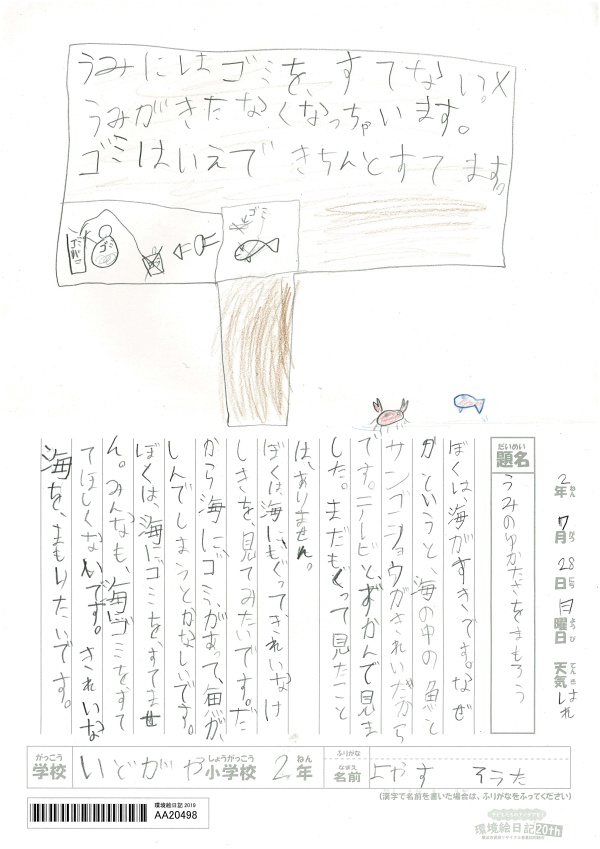 うみにはゴミを、すてない。×
うみがきたなくなっちゃいます。
ゴミはいえで きちんとすてます。
ゴミ
ゴミ
ゴミ
だいめい
題名
うみのゆかださをまもろう
2年 7月 28日 日曜日 天気 はれ
ねん がつ にち ようび てんき
ぼくは、海がすきです。なぜ
かというと、海の中の魚と
サンゴショウがきれいだから
です。テレビと、ずかんで見ま
した。まだもぐって見たこと
は、ありません。
ぼくは、海にもぐってきれいなけ
しきを、見てみたいです。だ
から海にゴミが、あって、魚が、
しんでしまうとかなしいです。
ぼくは、海にゴミを、すてませ
ん。みんなも、海にゴミをすて
てほしくないです。きれいな
海を、まもりたいです。
がっこう
学校
いどがや
しょうがっこう
小学校 2年
ねん
ふりがな
なまえ
名前
よやす そうた
(漢字で名前を書いた場合は、ふりがなをふってください)
環境絵日記 2019
AA20498
環境絵日記20th